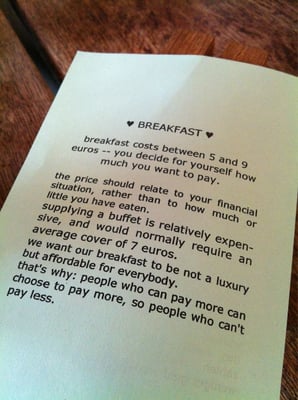 ♥ BREAKFAST ♥
breakfast costs between 5 and 9
euros -- you decide for yourself how
much you want to pay.
the price should relate to your financial
situation, rather than to how much or
little you have eaten.
supplying a buffet is relatively expen-
sive, and would normally require an
average cover of 7 euros.
we want our breakfast to be not a luxury
but affordable for everybody.
that's why: people who can pay more can
choose to pay more, so people who can't
pay less.